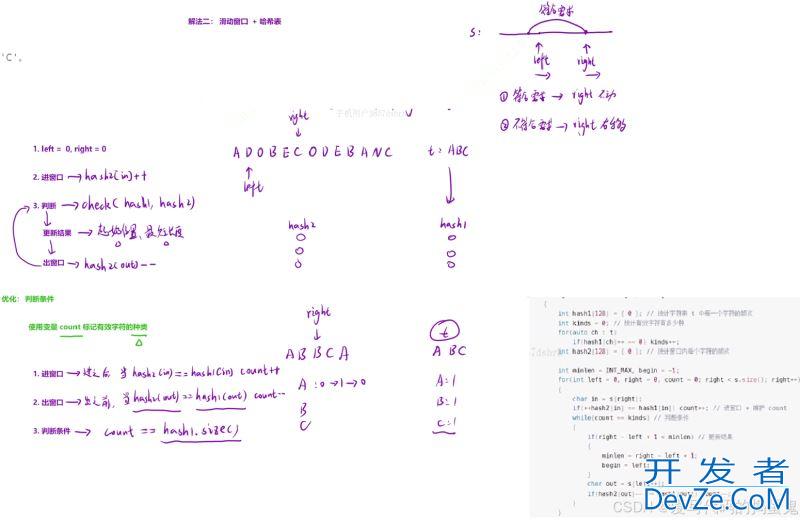 解法二: 滑动窗口 + 哈希表
符合要求
s:
left
right
'C'。
① 符合要求 → right 不动
② 不符合要求 → right 右移
right
ADOBECODEBANC
t: ABC
left
1. left = 0, right = 0
2. 进窗口 → hash2(in)++
3. 判断 → check(hash1, hash2)
更新结果 → 起始位置、最短长度
出窗口 → hash2(out)--
hash2
hash1
优化: 判断条件
使用变量 count 标记有效字符的种类
right
t
ABBCA
ABC
1. 进窗口 → 进之后, 当 hash2(in)==hash1(in) count++
2. 出窗口 → 出之前, 当 hash2(out)==hash1(out) count--
3. 判断条件 → count == hash1.size()
A: 0→1→0
B
C
A:1
B:1
C:1
{
int hash1[128] = { 0 }; // 统计字符串 t 中每一个字符的频次
int kinds = 0; // 统计有效字符有多少种
for(auto ch : t)
if(hash1[ch]++ == 0) kinds++;
int hash2[128] = { 0 }; // 统计窗口内每个字符的频次
int minlen = INT_MAX, begin = -1;
for(int left = 0, right = 0, count = 0; right < s.size(); right++)
{
char in = s[right];
if(++hash2[in] == hash1[in]) count++; // 进窗口 + 维护 count
while(count == kinds) // 判断条件
{
if(right - left + 1 < minlen) // 更新结果
{
minlen = right - left + 1;
begin = left;
}
char out = s[left++];
if(hash2[out]
}
}
开发者
DevZe.CoM
CSDN